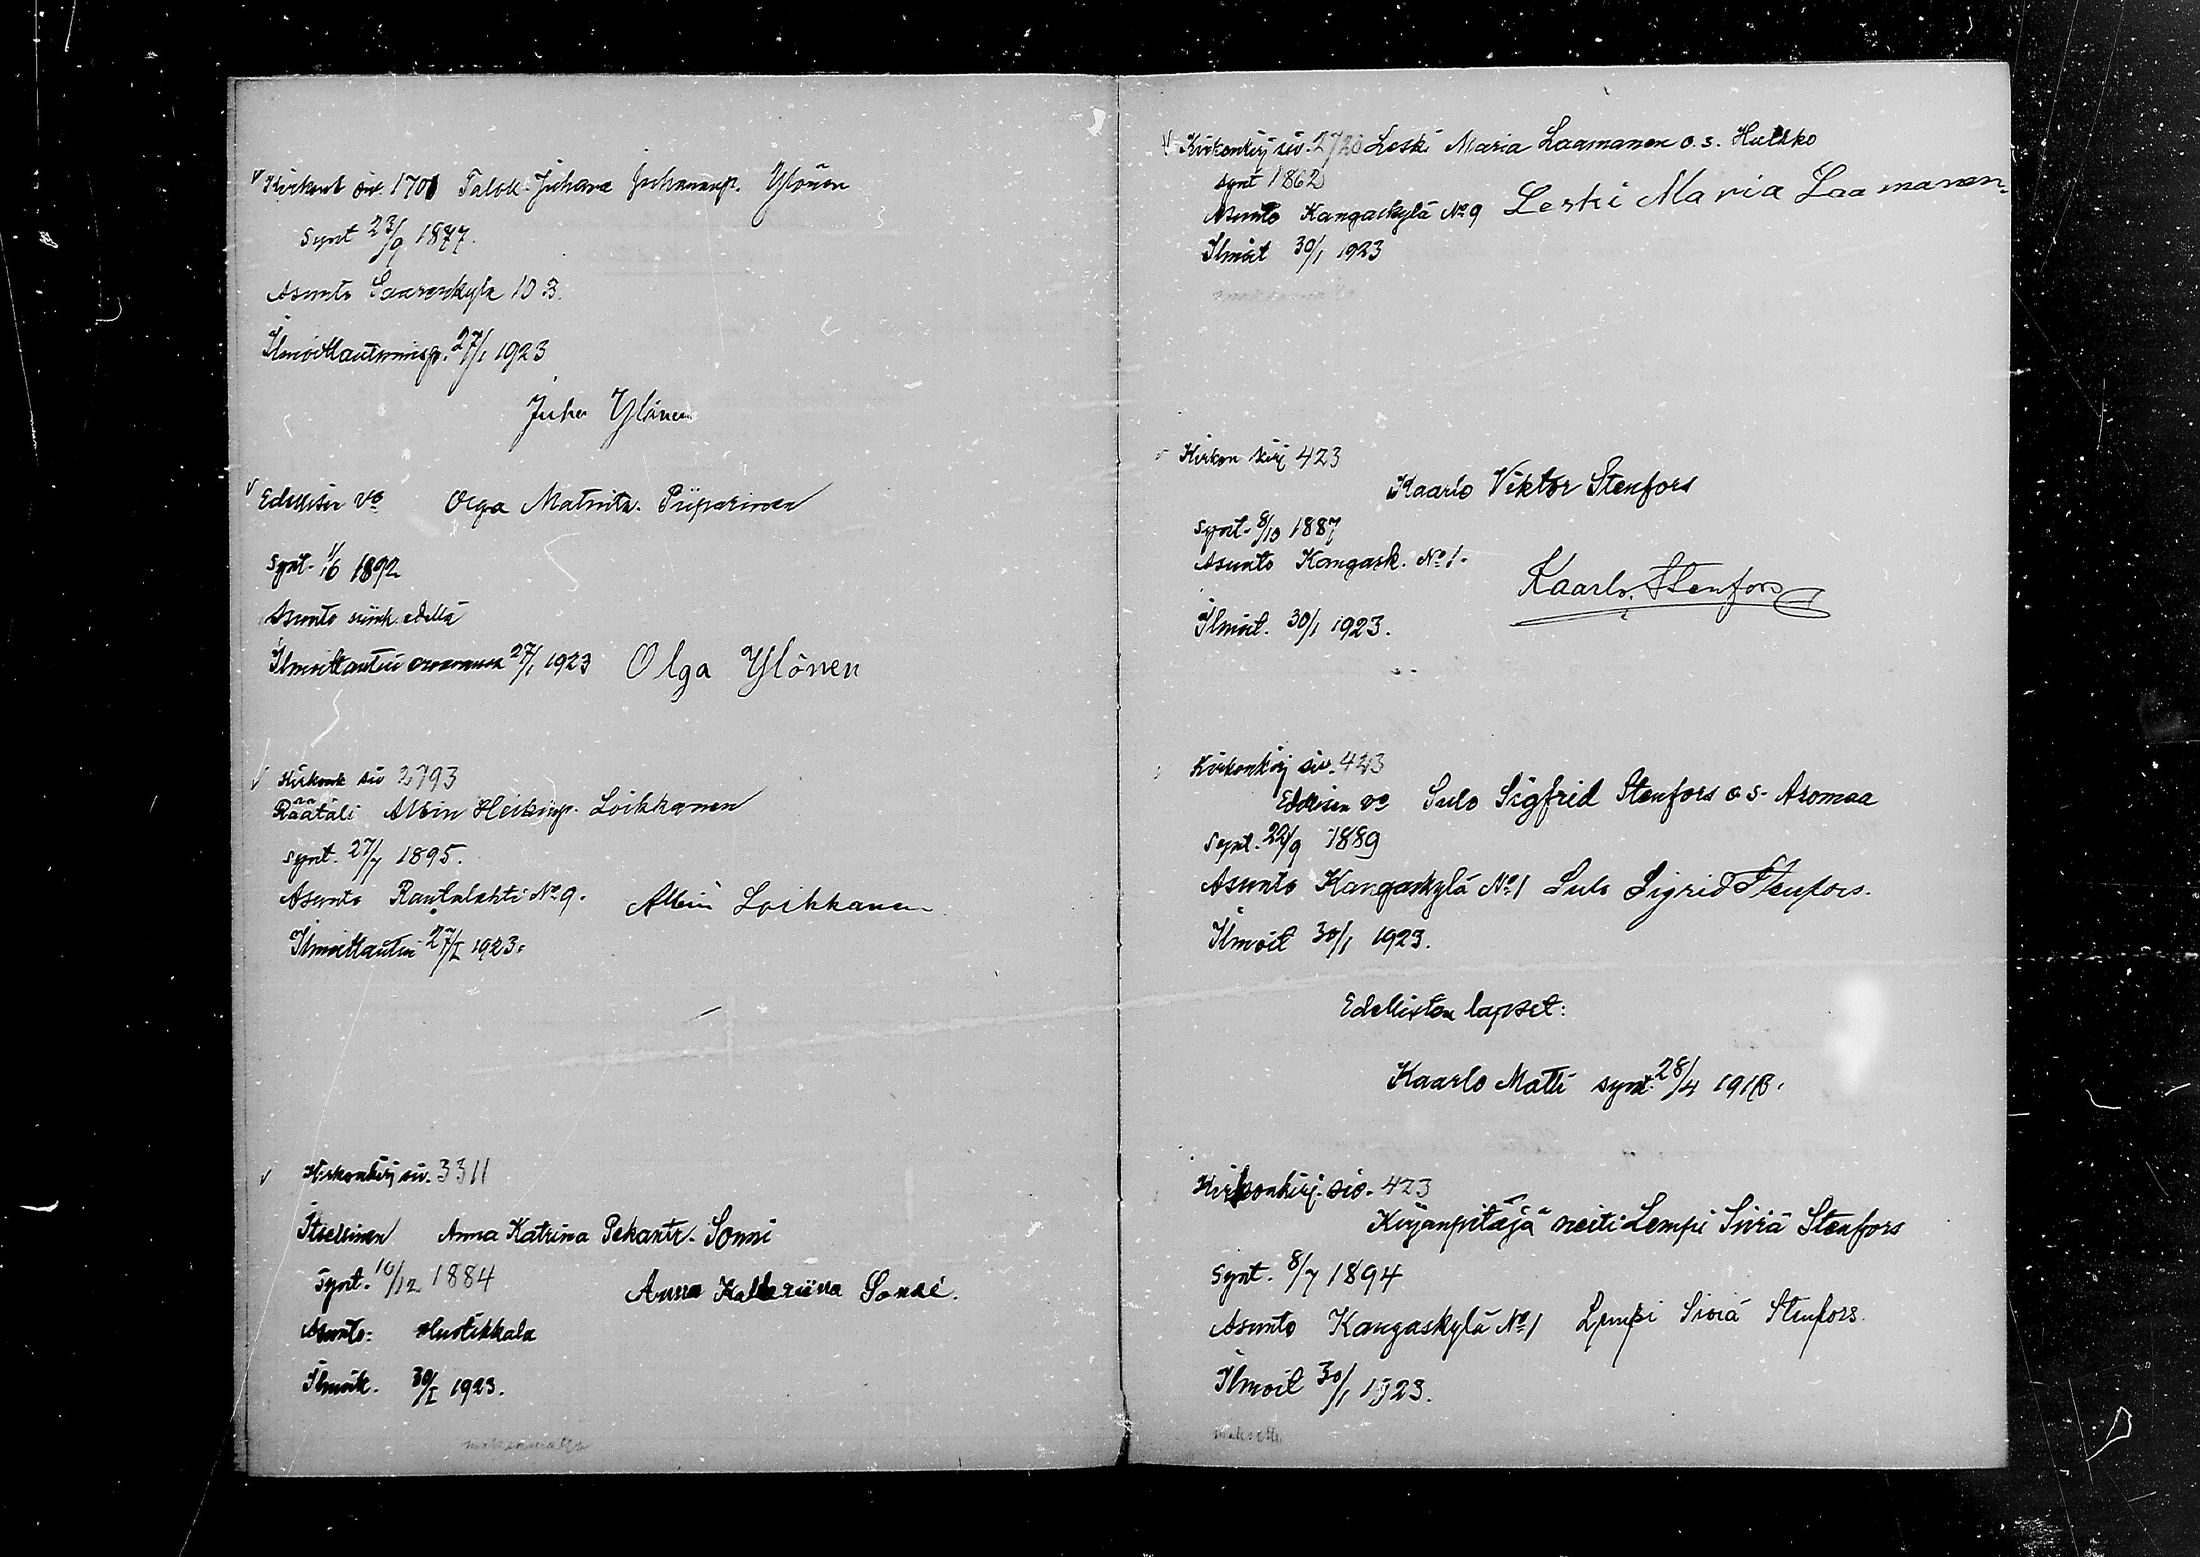 Kirkonk siv. 1701 Talok. Juhana Juhananp. Ylönen
synt 23/9 1877.
Asunto Saarenkylä 10 B.
Ilmoittautumisp. 27/1 1923
Juho Ylönen
Edellisen vo Olga Matintr. Piiparinen
synt. 1/6 1892
Asunto edellä
Ilmoittautui 27/1 1923 Olga Ylönen
Kirkonk siv 2793
Räätäli Albin Heikinp. Loikkanen
synt. 27/7 1895.
Asunto Rautalahti No 9. Albin Loikkanen
Ilmoittautui 27/I 1923.
Kirkonkirj siv. 3311
Itsellinen Anna Katrina Pekantr. Sonni
synt. 10/12 1884
Anna Katteriina Sonni.
Asunto: Huotikkala
Ilmoit. 30/I 1923.
Kirkonkirj siv. 2720 Leski Maria Laamanen o.s. Hulkko
synt 1862
Asunto Kangaskylä No 9 Leski Maria Laamanen.
Ilmoit 30/1 1923
Kirkon kirj 423
Kaarlo Viktor Stenfors
synt. 8/10 1887
Asunto Kangask. No 1.
Kaarlo Stenfors
Ilmoit. 30/1 1923.
Kirkonkirj siv. 423
Edellisen vo Sulo Sigfrid Stenfors o s. Aromaa
Synt. 22/9 1889
Asunto Kangaskylä No 1 Sulo Sigrid Stenfors.
Ilmoit 30/1 1923.
Edellisten lapset:
Kaarlo Matti synt. 28/4 1918.
Kirkonkirj. siv. 423
Kirjanpitäjä neiti Lempi Siviä Stenfors
Synt. 8/7 1894
Asunto Kangaskylä No 1 Lempi Siviä Stenfors.
Ilmoit 30/1 1923.